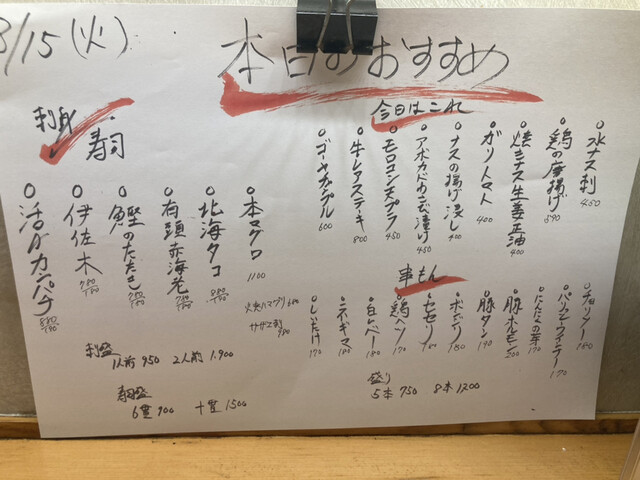 8/15 (火)
本日のおすすめ
今日はこれ
水ナス刺 450
鶏の唐揚げ 590
焼きナス生姜正油 400
ガリトマト 400
ナスの揚げ浸し 450
アボカドの漬け 450
モロコシ天プラ 450
牛レアステーキ 800
ゴーヤチャンプル 600
刺身
寿司
本マグロ 1100
北海タコ 880/180
有頭赤海老 780/180
鰹のたたき 780/180
伊佐木 780/180
活〆カンパチ 880/190
サザエ刺 980
串もん
チョリソー 180
にんにくの芽 170
豚ホルモン 200
豚タン 190
ボンジリ 180
セセリ 180
鶏ヘソ 170
白レバー 180
ネギマ 180
しいたけ 170
盛り
5本 750 8本 1200
刺盛
1人前 950 2人前 1.900
寿司盛
6貫 900 十貫 1500